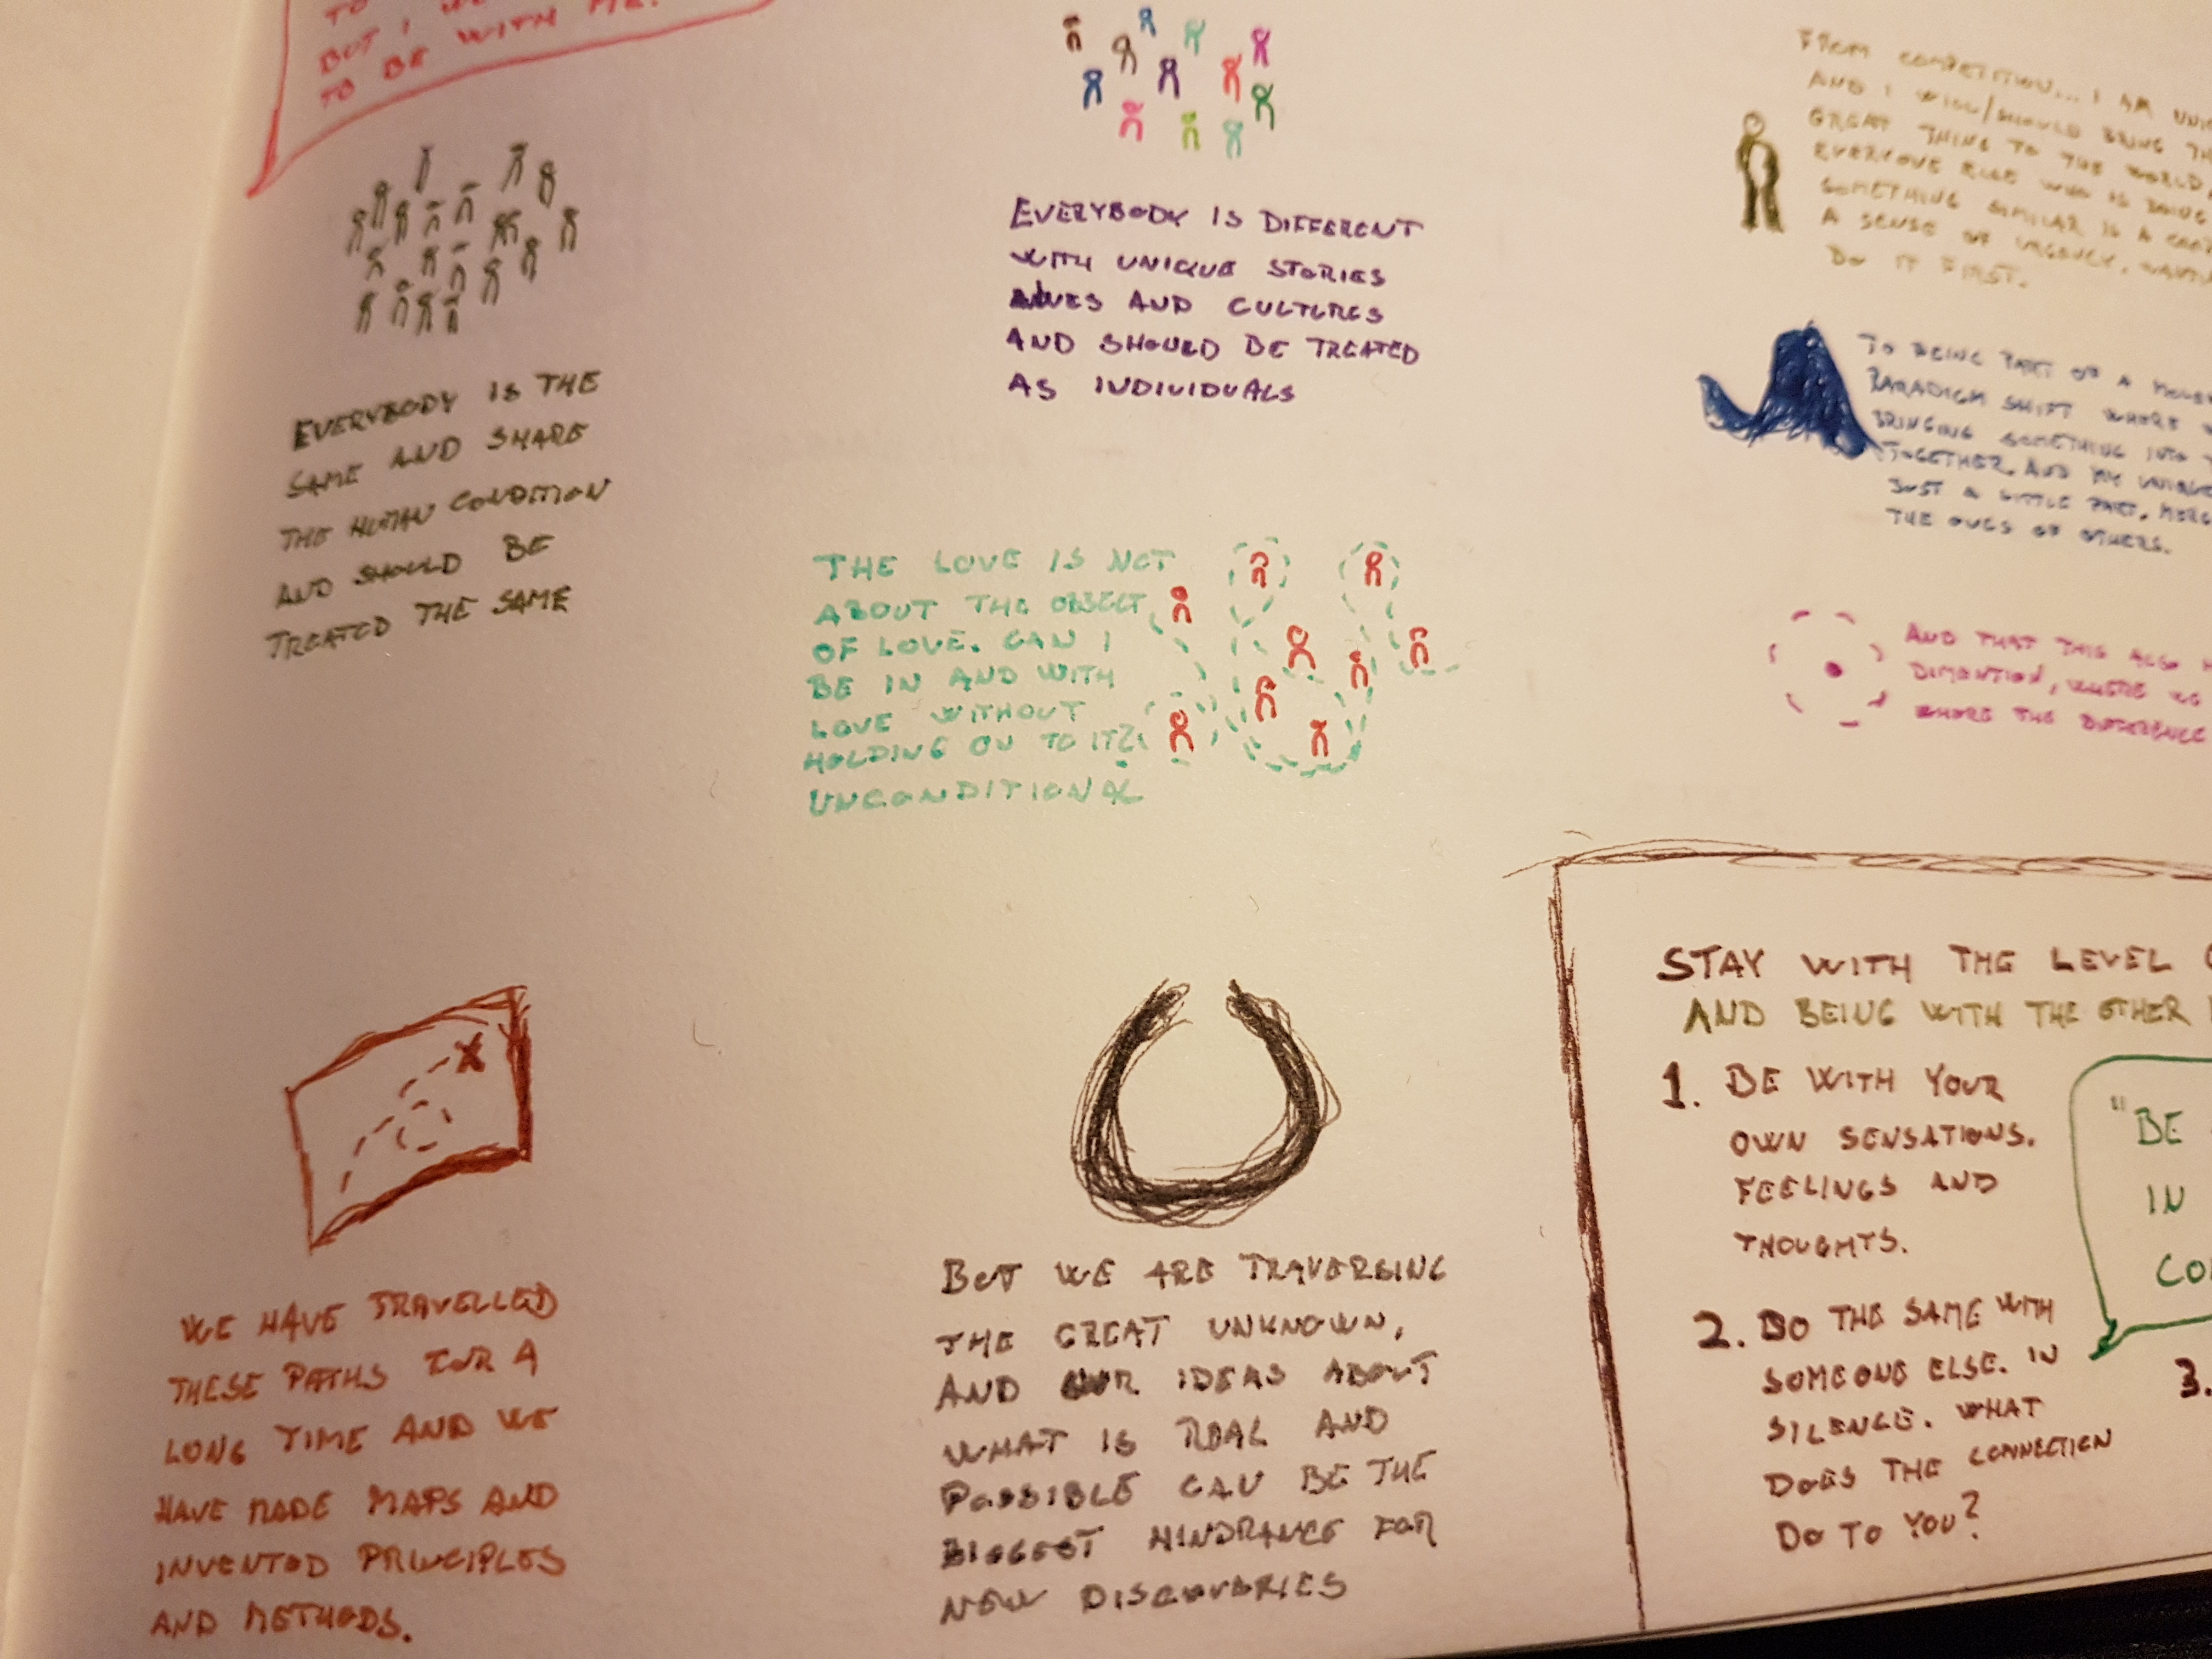 TO
BUT I
TO BE WITH ME.
EVERYBODY IS THE
SAME AND SHARE
THE HUMAN CONDITION
AND SHOULD BE
TREATED THE SAME
EVERYBODY IS DIFFERENT
WITH UNIQUE STORIES
AND CULTURES
AND SHOULD BE TREATED
AS INDIVIDUALS
FROM COMPETITION... I AM
AND I WILL/SHOULD BRING
GREAT THING TO THE WORLD,
EVERYONE ELSE WHO IS DOING
SOMETHING SIMILAR IS A
A SENSE OF URGENCY,
DO IT FIRST.
TO BEING PART OF A
PARADIGM SHIFT WHERE
BRINGING SOMETHING INTO
TOGETHER. AND MY
JUST A LITTLE PART,
THE OVES OF OTHERS.
THE LOVE IS NOT
ABOUT THE OBJECT
OF LOVE. CAN I
BE IN AND WITH
LOVE WITHOUT
HOLDING ON TO IT?
UNCONDITIONAL
AND THAT THIS ALSO
DIMENTION, WHERE WE
WHERE THE DIFFERENCE
WE HAVE TRAVELLED
THESE PATHS FOR A
LONG TIME AND WE
HAVE MADE MAPS AND
INVENTED PRINCIPLES
AND METHODS.
BUT WE ARE TRAVERSING
THE GREAT UNKNOWN,
AND OUR IDEAS ABOUT
WHAT IS REAL AND
POSSIBLE CAN BE THE
BIGGEST HINDRANCE FOR
NEW DISCOVERIES
STAY WITH THE LEVEL
AND BEING WITH THE OTHER
1. BE WITH YOUR
OWN SENSATIONS.
FEELINGS AND
THOUGHTS.
"BE
IN
2. DO THE SAME WITH
SOMEONE ELSE. IN
SILENCE. WHAT
DOES THE CONNECTION
DO TO YOU?
3.